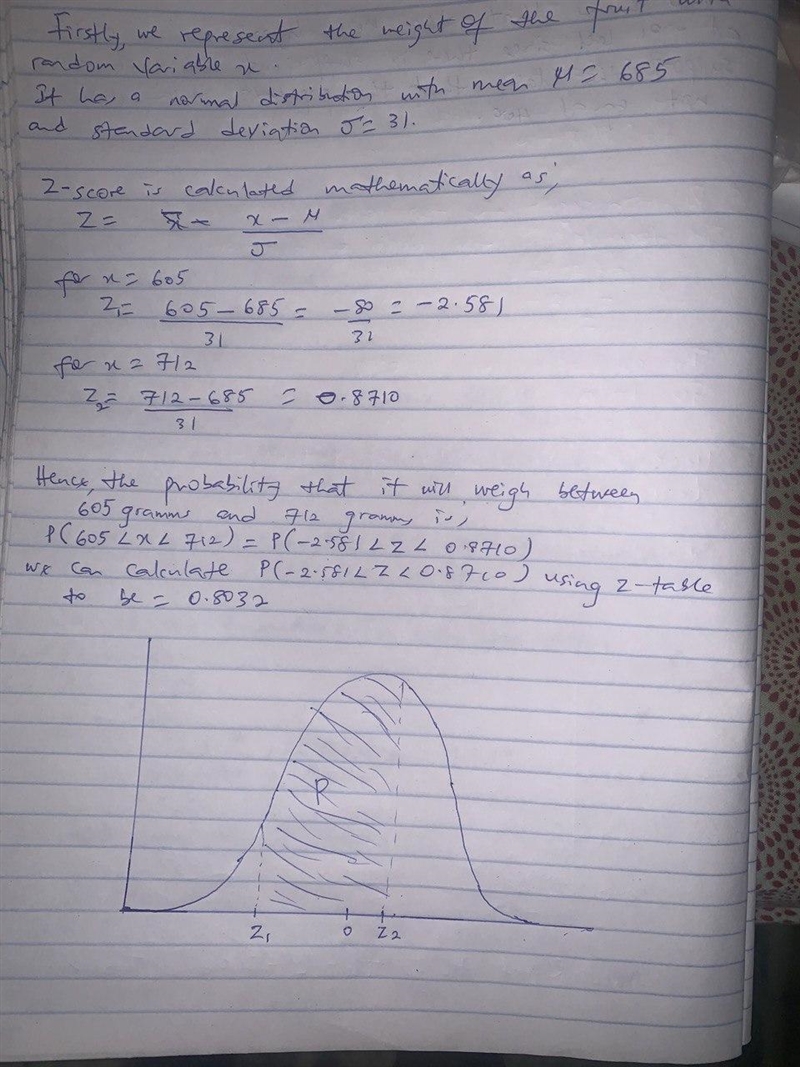 Firstly, we represent the weight of the fruit with
random variable x.
It has a normal distribution with mean μ = 685
and standard deviation σ = 31.
Z-score is calculated mathematically as,
Z = x - μ
σ
for x = 605
Z₁ = 605 - 685 = -80 = -2.581
31 31
for x = 712
Z₂ = 712 - 685 = 0.8710
31
Hence, the probability that it will weigh between
605 gramms and 712 gramms is,
P(605 < x < 712) = P(-2.581 < Z < 0.8710)
We can calculate P(-2.581 < Z < 0.8710) using Z-table
to be = 0.8032
P
Z₁ 0 Z₂